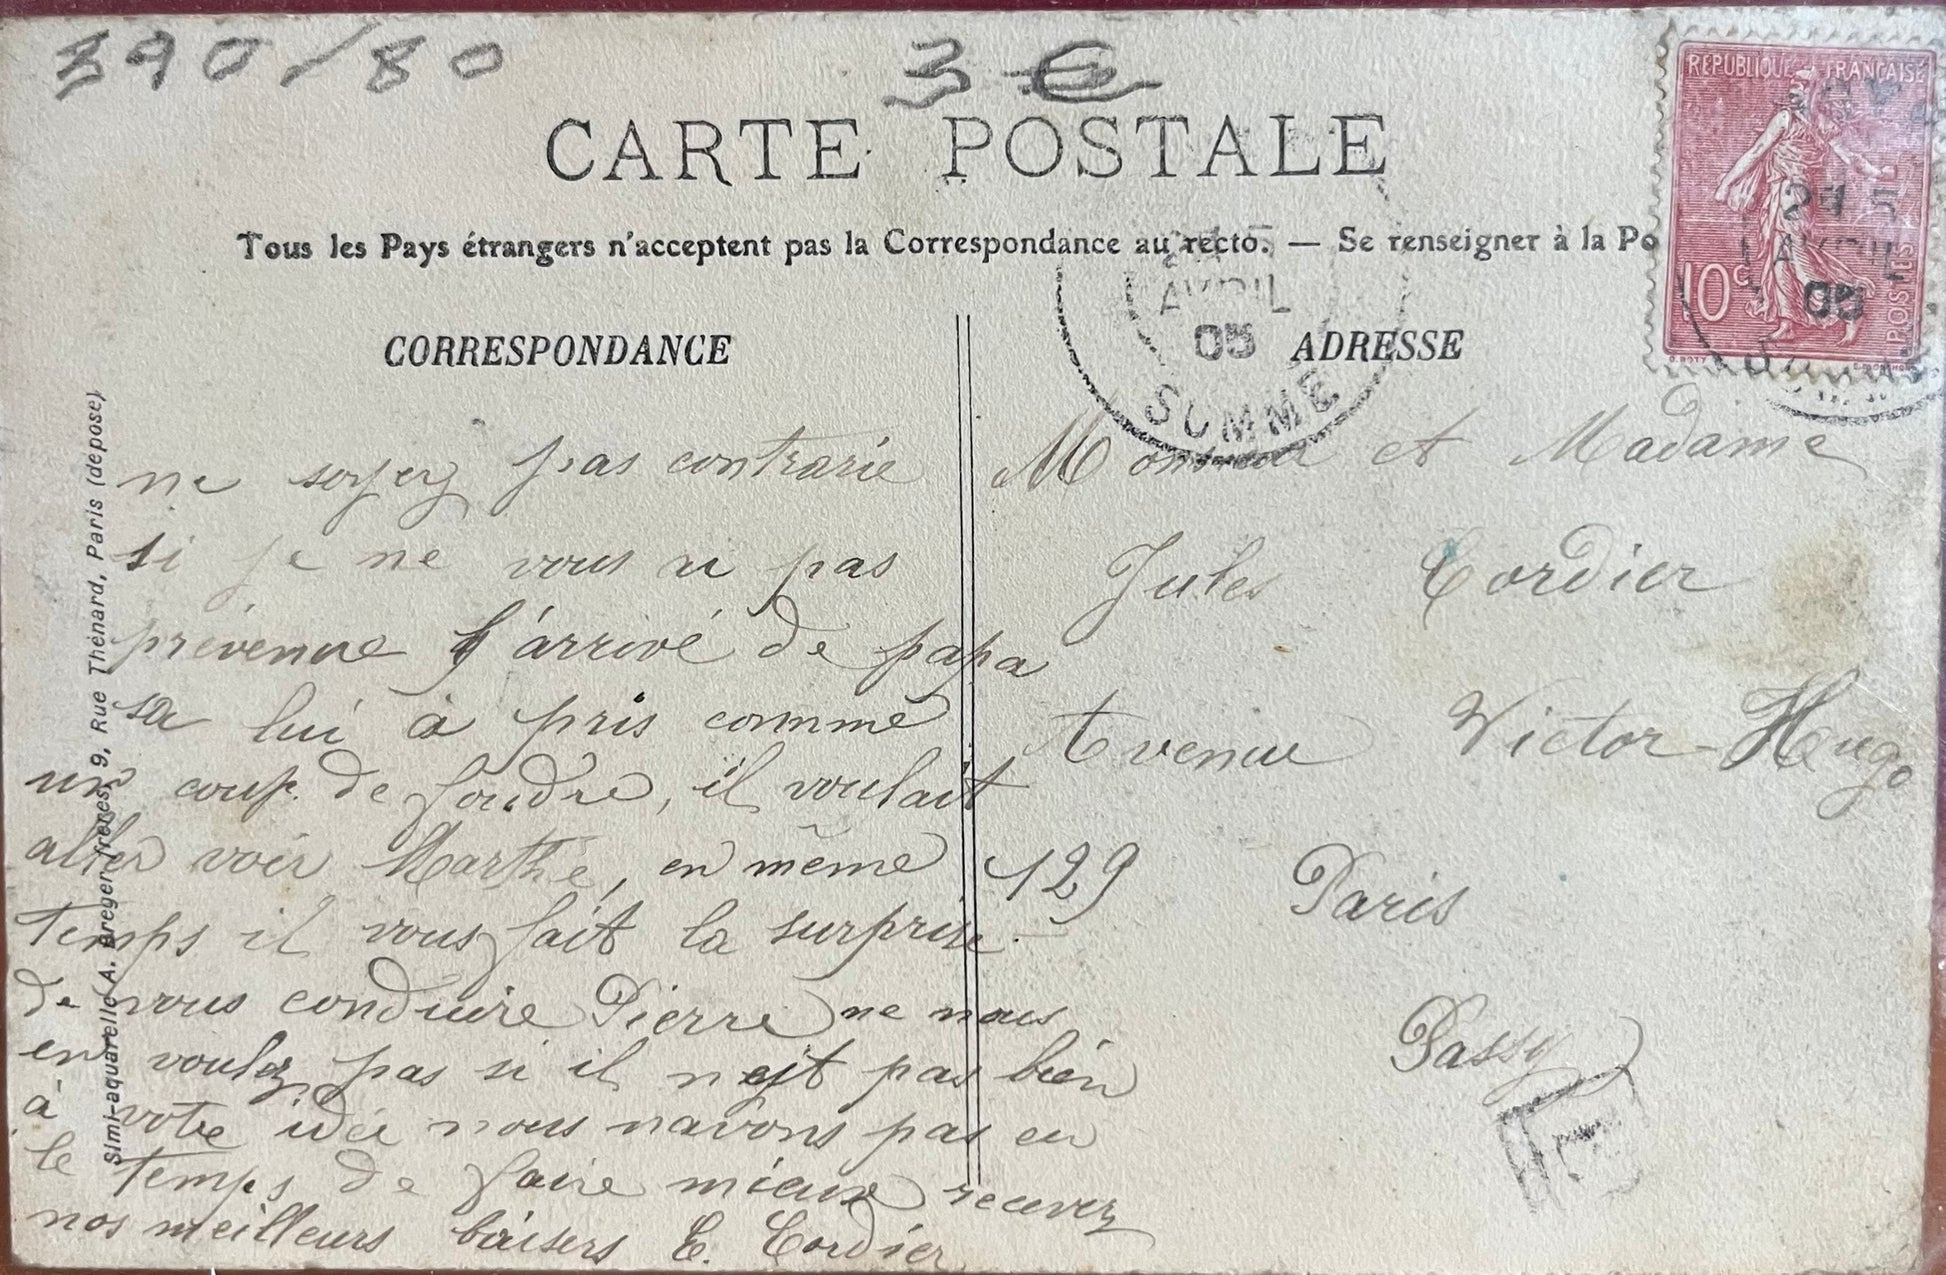 390/80
3 €
CARTE POSTALE
Tous les Pays étrangers n'acceptent pas la Correspondance au recto. — Se renseigner à la Po
REPUBLIQUE FRANCAISE
10c
POSTES
O. ROTY
24 5
AVRIL
05
AVRIL
05
SOMME
CORRESPONDANCE
ne soyez pas contrarie
si je ne vous ai pas
prévenue l'arrivé de papa
sa lui à pris comme
un coup de foudre, il voulait
aller voir Marthe, en même
temps il vous fait la surprise
de vous conduire Pierre ne nous
en voulez pas si il nest pas bien
à votre idée nous navons pas eu
le temps de faire mieux recevez
nos meilleurs baisers E. Cordier
ADRESSE
Monsieur et Madame
Jules Cordier
Avenue Victor-Hugo
129 Paris
Passy
E
Simi-aquarelle A. Breger frères, 9, Rue Thénard, Paris (déposé)